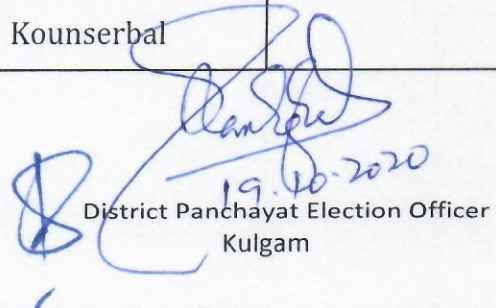 Kounserbal
19.10.2020
District Panchayat Election Officer
Kulgam